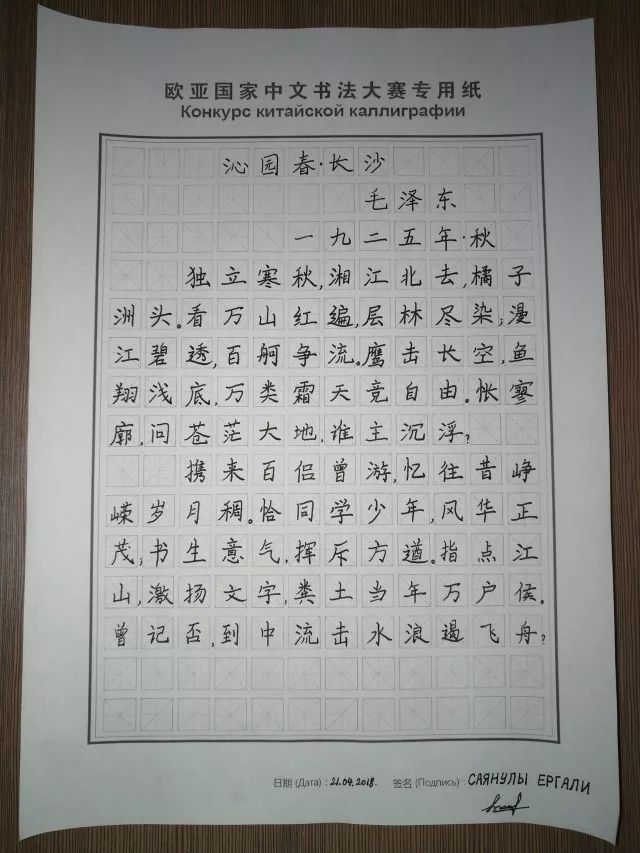 欧亚国家中文书法大赛专用纸
Конкурс китайской каллиграфии
沁园春·长沙
毛泽东
一九二五年·秋
独立寒秋,湘江北去,橘子
洲头。看万山红遍,层林尽染;漫
江碧透,百舸争流。鹰击长空,鱼
翔浅底,万类霜天竞自由。怅寥
廓,问苍茫大地,谁主沉浮?
携来百侣曾游,忆往昔峥
嵘岁月稠。恰同学少年,风华正
茂;书生意气,挥斥方遒。指点江
山,激扬文字,粪土当年万户侯。
曾记否,到中流击水,浪遏飞舟?
日期 (Дата) : 21.04.2018. 签名 (Подпись) : САЯНУЛЫ ЕРГАЛИ